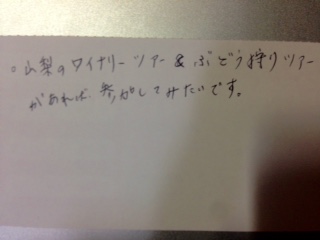 ○山梨のワイナリーツアー&ぶどう狩りツアー
があれば、参加してみたいです。